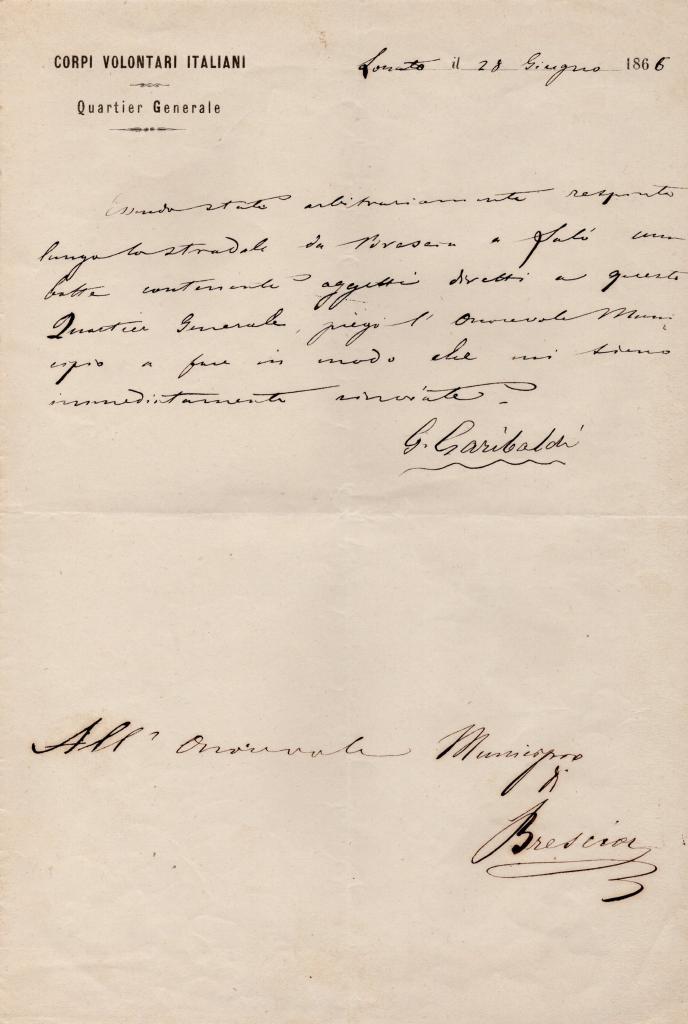 CORPI VOLONTARI ITALIANI
Quartier Generale
Lonato il 28 Giugno 1866
Essendo stato arbitrariamente respinto
lungo lo stradale da Brescia a Salò una
botte contenente oggetti diretti a questo
Quartier Generale, priego l' Onorevole Muni-
cipio a fare in modo che mi sieno
immediatamente rinviate.
G. Garibaldi
All' Onorevole Municipio
di
Brescia